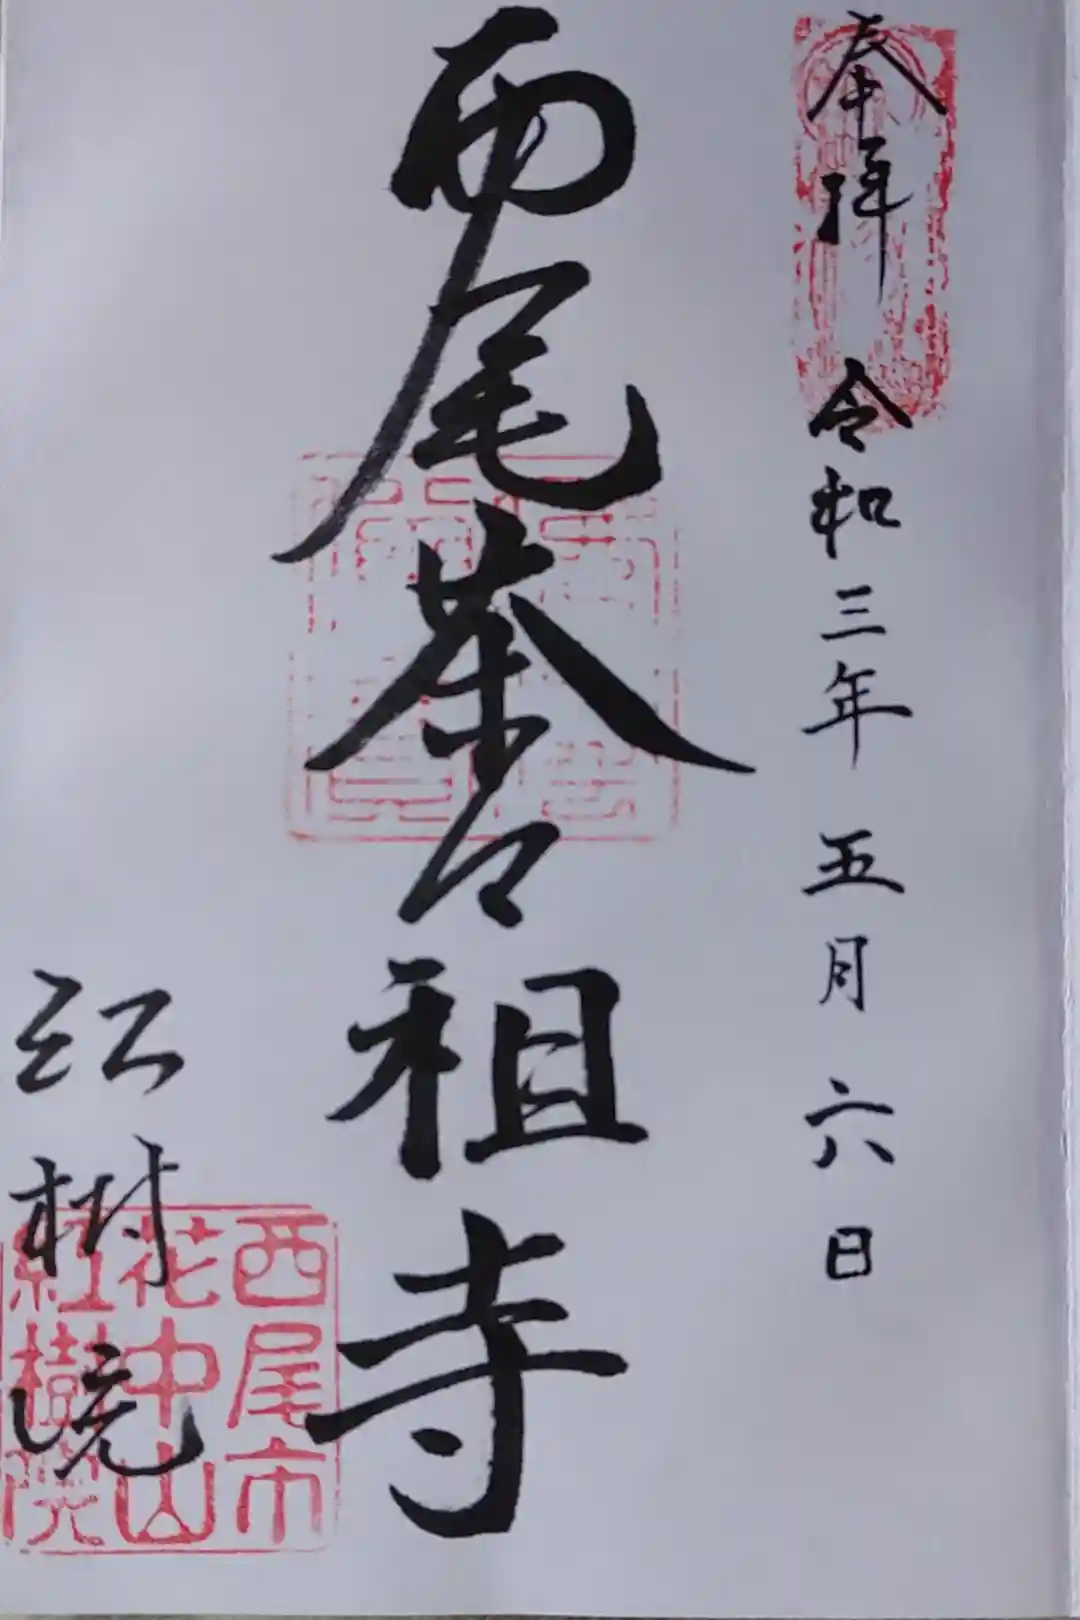 奉拝 令和三年 五月 六日
西尾茶祖寺
紅樹院
西尾市
花中山
紅樹院